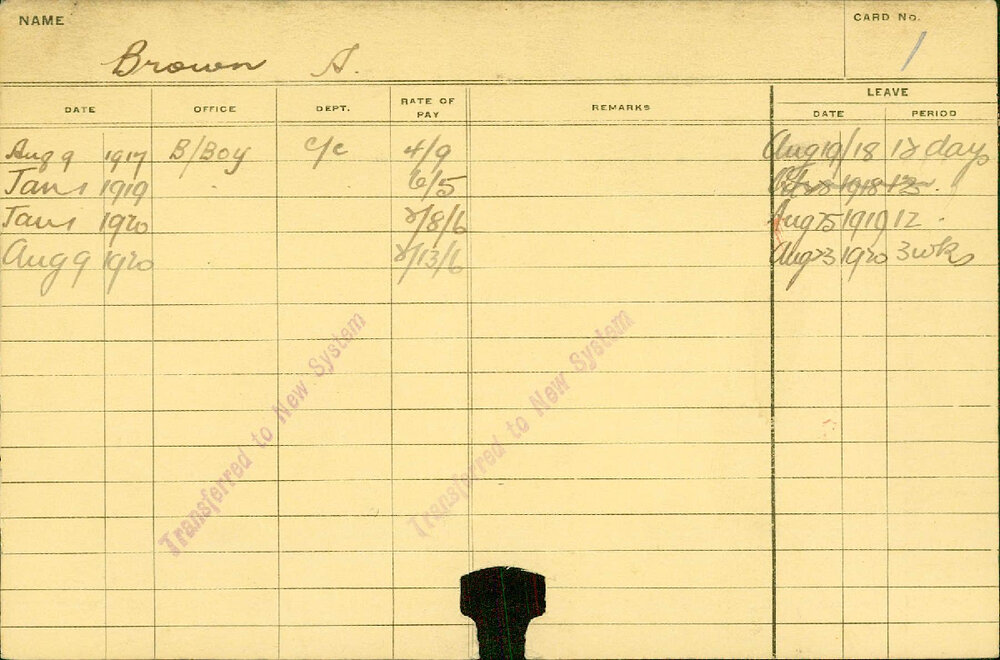 NAME
CARD No.
Brown A.
1
DATE OFFICE DEPT. RATE OF PAY REMARKS LEAVE
DATE PERIOD
Aug 9 1917 B/Boy C/C 4/9 Aug 19/18 12 days
Jan 1 1919 6/5 1918 12
Jan 1 1920 2/8/6 Aug 25 1919 12
Aug 9 1920 2/13/6 Aug 23 1920 3 wks
Transferred to New System
Transferred to New System